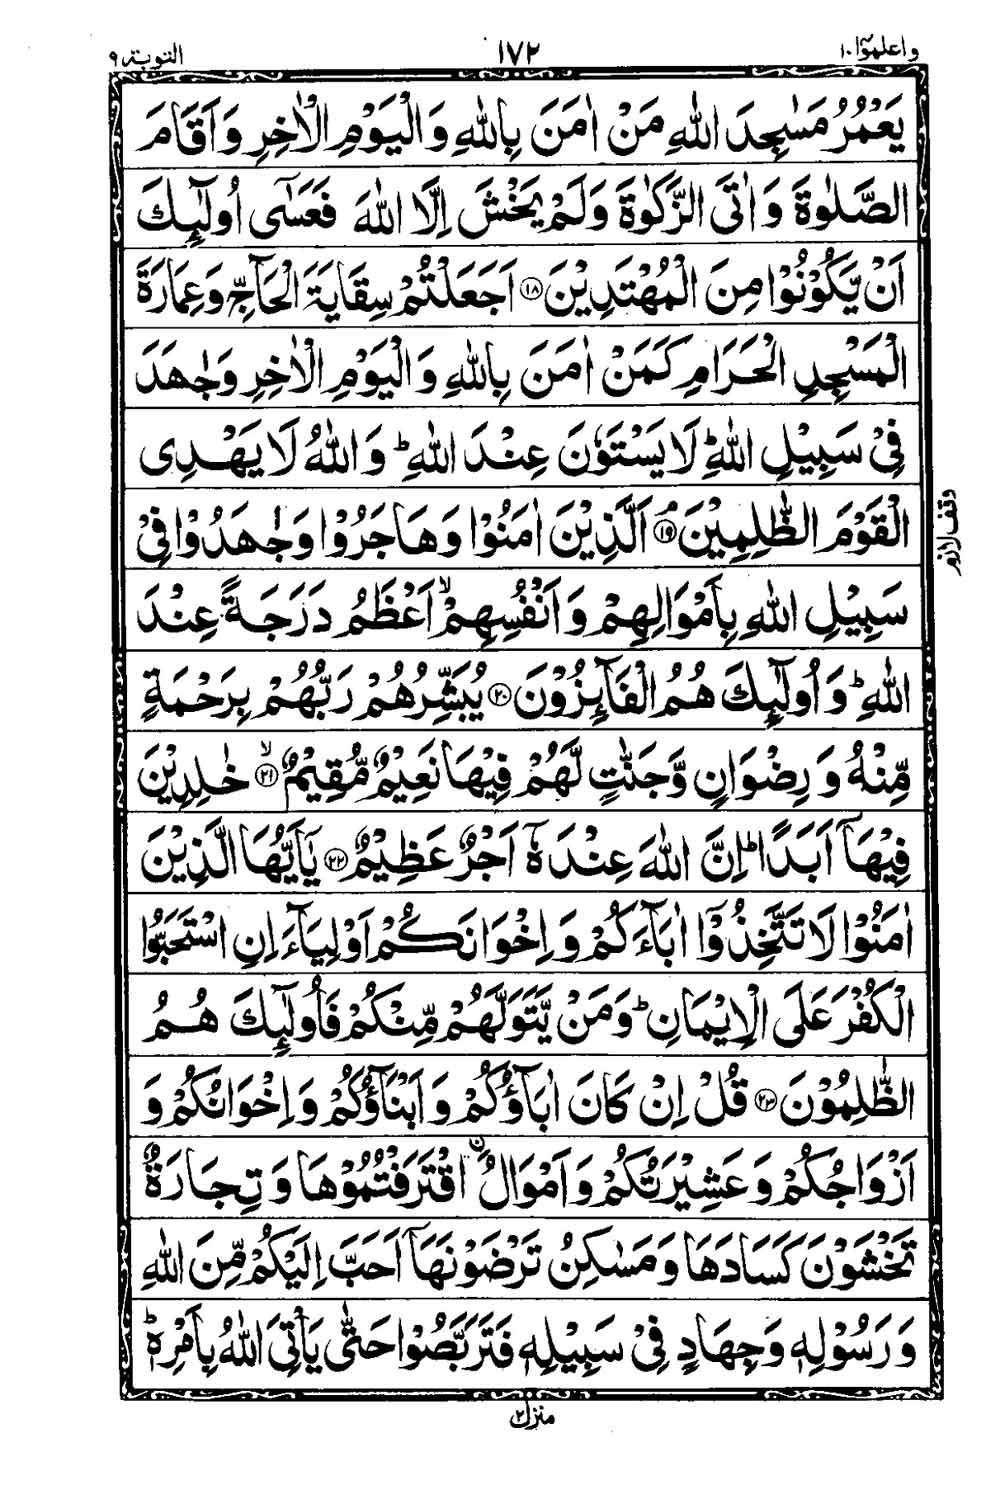 واعلموۤا ١٠ ١٧٢ التوبة ٩
يَعْمُرُ مَسٰجِدَ اللّٰهِ مَنْ اٰمَنَ بِاللّٰهِ وَالْيَوْمِ الْاٰخِرِ وَاَقَامَ
الصَّلٰوةَ وَاٰتَى الزَّكٰوةَ وَلَمْ يَخْشَ اِلَّا اللّٰهَ فَعَسٰۤى اُولٰٓئِكَ
اَنْ يَّكُوْنُوْا مِنَ الْمُهْتَدِيْنَ ۝١٨ اَجَعَلْتُمْ سِقَايَةَ الْحَآجِّ وَعِمَارَةَ
الْمَسْجِدِ الْحَرَامِ كَمَنْ اٰمَنَ بِاللّٰهِ وَالْيَوْمِ الْاٰخِرِ وَجٰهَدَ
فِيْ سَبِيْلِ اللّٰهِؕ لَا يَسْتَوٗنَ عِنْدَ اللّٰهِؕ وَاللّٰهُ لَا يَهْدِى
الْقَوْمَ الظّٰلِمِيْنَۘ ۝١٩ اَلَّذِيْنَ اٰمَنُوْا وَهَاجَرُوْا وَجٰهَدُوْا فِيْ
سَبِيْلِ اللّٰهِ بِاَمْوَالِهِمْ وَاَنْفُسِهِمْۙ اَعْظَمُ دَرَجَةً عِنْدَ
اللّٰهِؕ وَاُولٰٓئِكَ هُمُ الْفَآئِزُوْنَ ۝٢٠ يُبَشِّرُهُمْ رَبُّهُمْ بِرَحْمَةٍ
مِّنْهُ وَرِضْوَانٍ وَّجَنّٰتٍ لَّهُمْ فِيْهَا نَعِيْمٌ مُّقِيْمٌۙ ۝٢١ خٰلِدِيْنَ
فِيْهَاۤ اَبَدًاؕ اِنَّ اللّٰهَ عِنْدَهٗۤ اَجْرٌ عَظِيْمٌ ۝٢٢ يٰۤاَيُّهَا الَّذِيْنَ
اٰمَنُوْا لَا تَتَّخِذُوْۤا اٰبَآءَكُمْ وَاِخْوَانَكُمْ اَوْلِيَآءَ اِنِ اسْتَحَبُّوا
الْكُفْرَ عَلَى الْاِيْمَانِؕ وَمَنْ يَّتَوَلَّهُمْ مِّنْكُمْ فَاُولٰٓئِكَ هُمُ
الظّٰلِمُوْنَ ۝٢٣ قُلْ اِنْ كَانَ اٰبَآؤُكُمْ وَاَبْنَآؤُكُمْ وَاِخْوَانُكُمْ وَ
اَزْوَاجُكُمْ وَعَشِيْرَتُكُمْ وَاَمْوَالُ ِ۟اقْتَرَفْتُمُوْهَا وَتِجَارَةٌ
تَخْشَوْنَ كَسَادَهَا وَمَسٰكِنُ تَرْضَوْنَهَاۤ اَحَبَّ اِلَيْكُمْ مِّنَ اللّٰهِ
وَرَسُوْلِهٖ وَجِهَادٍ فِيْ سَبِيْلِهٖ فَتَرَبَّصُوْا حَتّٰى يَاْتِىَ اللّٰهُ بِاَمْرِهٖؕ
وقف لازم
منزل ٢